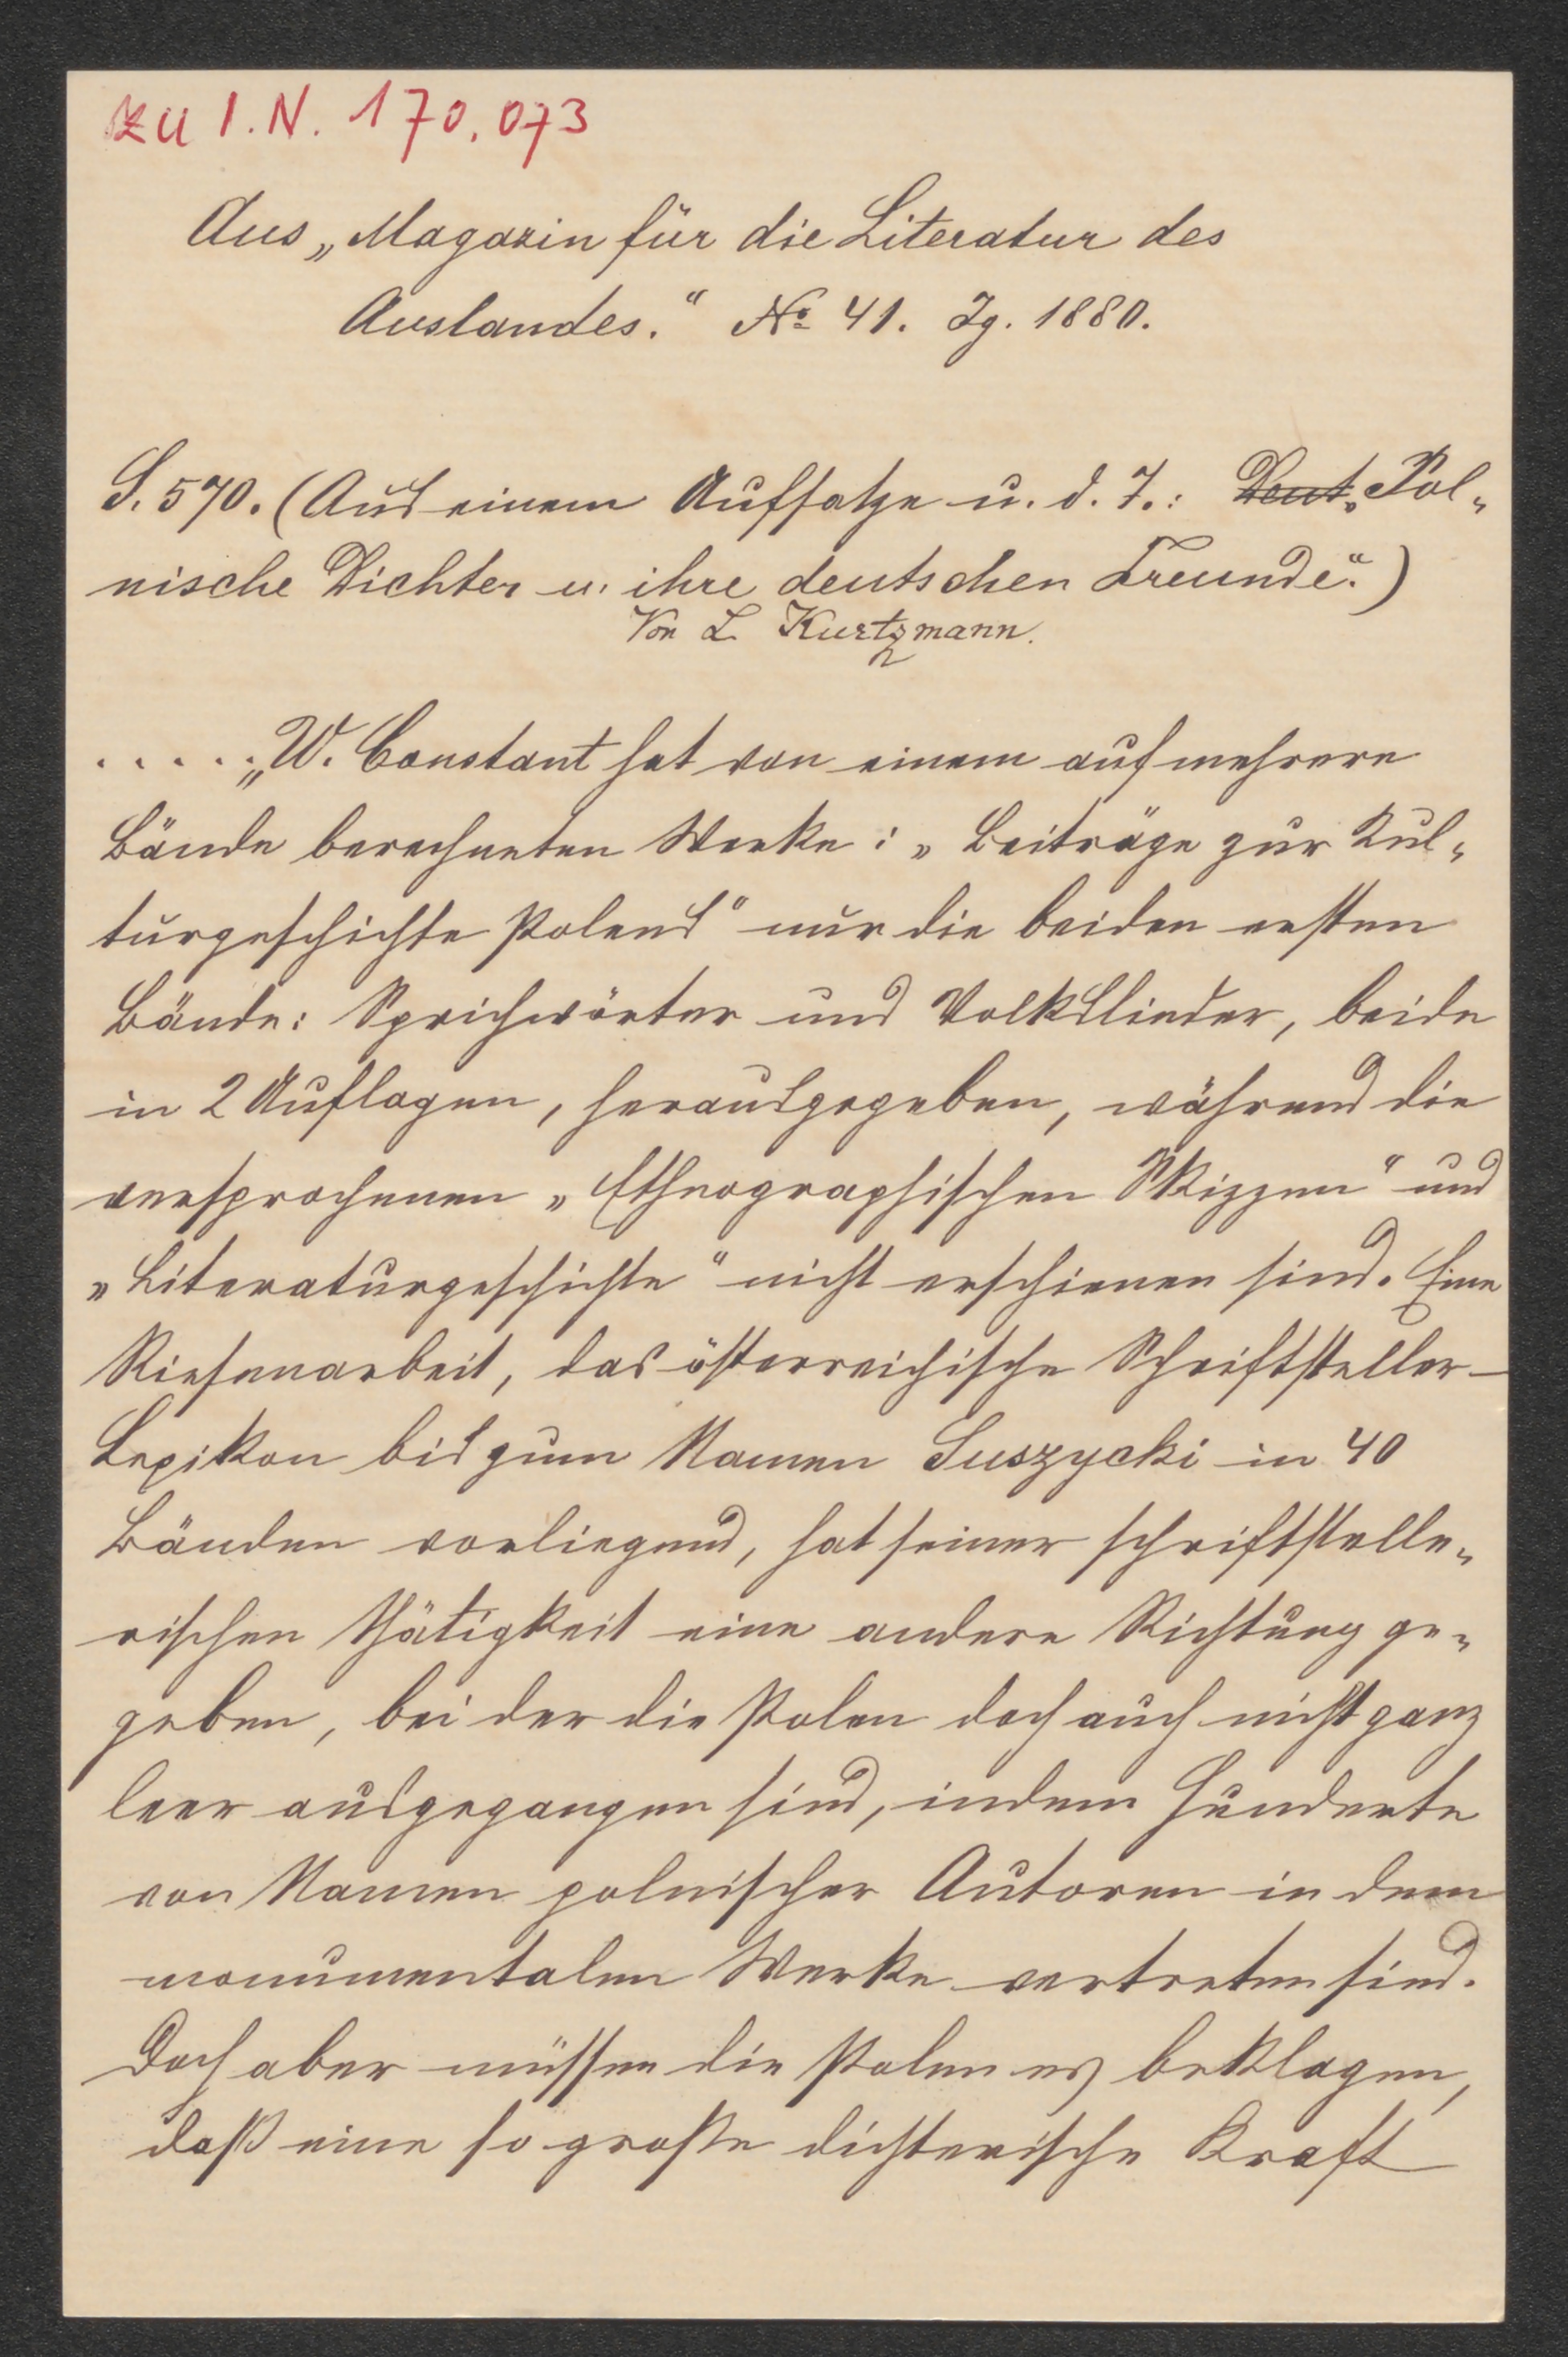 zu I.N. 170.073
Aus „Magazin für die Literatur des
Auslandes.“ No 41. Jg. 1880.
S. 570. (Aus einem Aufsatze u. d. T.: Deut. Pol-
nische Dichter u. ihre deutschen Freunde“.)
Von L. Kurtzmann.
. . . . . „W. Constant hat von einem auf mehrere
Bände berechneten Werke: „Beiträge zur Kul-
turgeschichte Polens“ nur die beiden ersten
Bände: Sprichwörter und Volkslieder, beide
in 2 Auflagen, herausgegeben, während die
versprochenen „Ethnographischen Skizzen“ und
„Literaturgeschichte“ nicht erschienen sind. Eine
Riesenarbeit, das österreichische Schriftsteller-
Lexikon bis zum Namen Suszycki in 40
Bänden vorliegend, hat seiner schriftstelle-
rischen Thätigkeit eine andere Richtung ge-
geben, bei der die Polen doch auch nicht ganz
leer ausgegangen sind, indem Hunderte
von Namen polnischer Autoren in dem
monumentalen Werke vertreten sind.
Doch aber müssen die Polen es beklagen,
daß eine so große dichterische Kraft